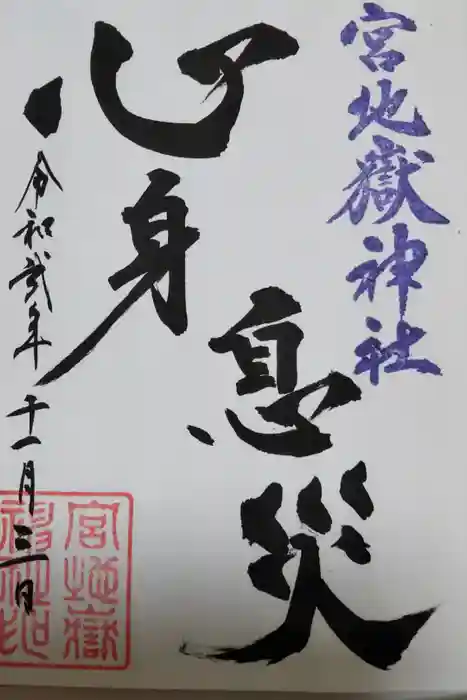 宮地嶽神社
心身
息災
令和貳年十一月三日
宮地嶽
神社